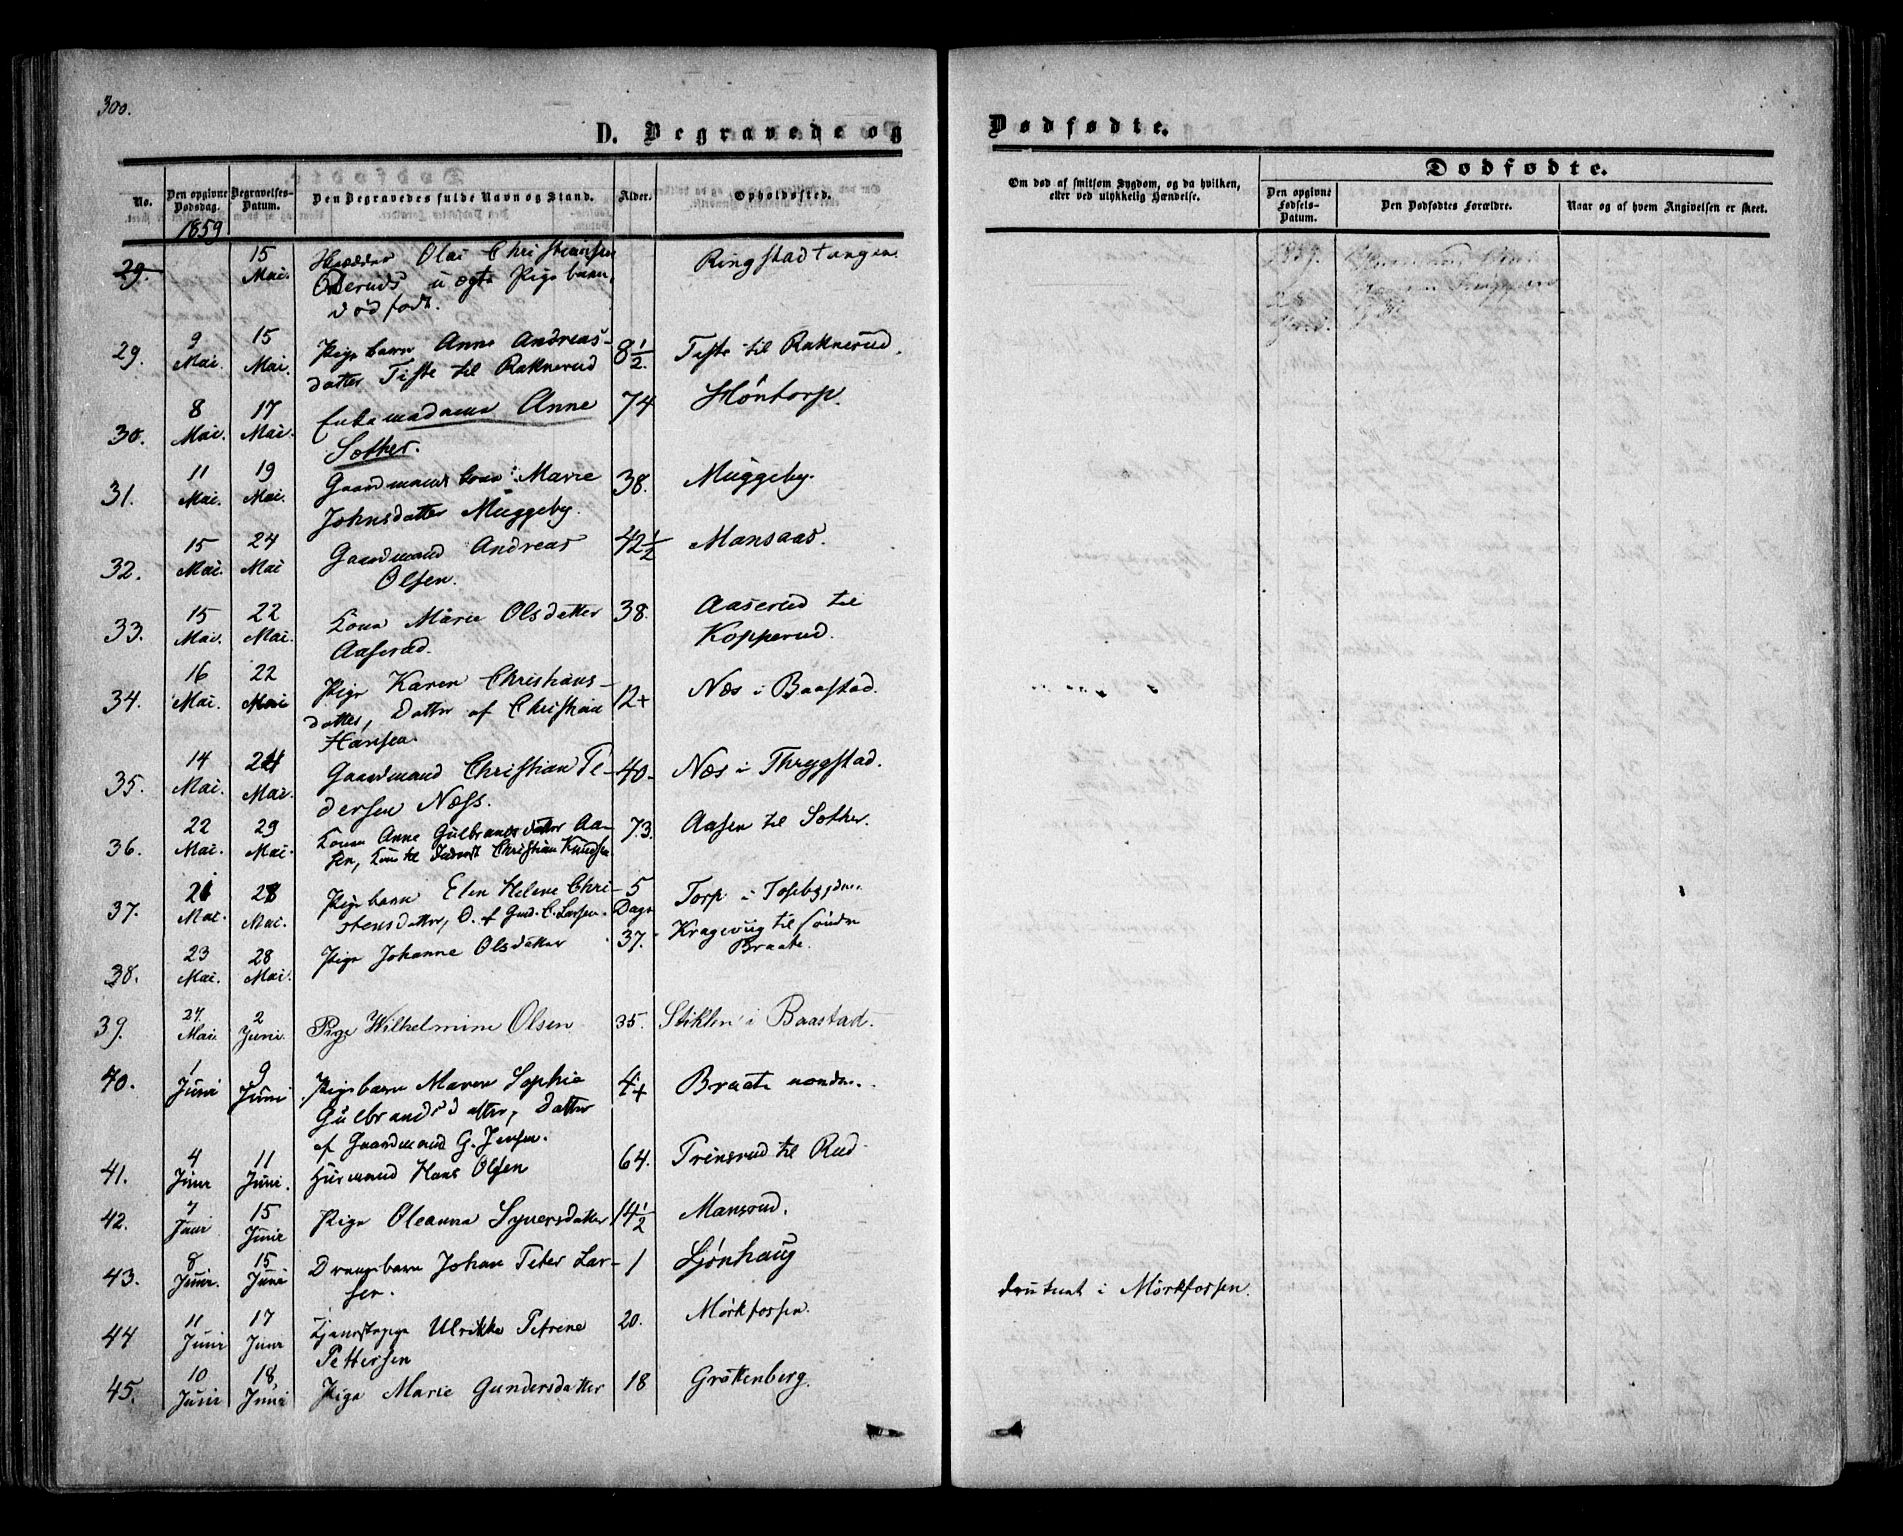 300.
D. Begravede og
Dødfødte.
No.
Den opgivne Dødsdag.
Begravelses-Datum.
Den Begravedes fulde Navn og Stand.
Alder.
Opholdssted.
Om død af smitsom Sygdom, og da hvilken, eller ved ulykkelig Hændelse.
Dødfødte.
Den opgivne Fødsels-Datum.
Den Dødfødtes Forældre.
Naar og af hvem Angivelsen er skeet.
1859
29. 15 Mai. Olai Christiansen Ringstadtangen
uægte Pigebarn,
dødfødt.
29. 9 Mai. 15 Mai. Pigebarn Anne Andreas- 8½ Teste til Raknerud.
datter Teste til Raknerud
30. 8 Mai. 17 Mai. Enkemadame Anne 74 Høntorp.
Sother.
31. 11 Mai. 19 Mai. Gaardmands Kone Marie 38. Muggeby.
Johnsdatter Muggeby.
32. 15 Mai. 24 Mai Gaardmand Andreas 42½ Mansaas.
Olsen.
33. 15 Mai. 22 Mai. Kone Marie Olsdatter 38. Aaserud til
Aaserud. Kopperud.
34. 16 Mai. 22 Mai Pige Karen Christians- 12+ Næs i Baastad.
datter, Datter af Christian
Hansen.
35. 14 Mai. 24 Mai. Gaardmand Christian Pe- 40. Næs i Thrygstad.
dersen Næss.
36. 22 Mai. 29 Mai. Kone Anne Gulbrandsdatter Aa- 73. Aasen til Sother.
sen, Kone til Christian Knudsen
37. 21 Mai. 28 Mai. Pigebarn Elen Helene Chri- 5 Dage Torp i
stensdatter, D. af C. Larsen.
38. 23 Mai. 28 Mai. Pige Johanne Olsdatter 37. Kragevug til søndre
Braate.
39. 27. Mai. 2 Juni. Pige Wilhelmine Olsen 35. Stiklen i Baastad.
40. 1 Juni 9 Juni Pigebarn Maren Sophie 4+ Braate nondre.
Gulbrandsdatter, Datter
af Gaardmand G. Jensen.
41. 4 Juni 11 Juni. Husmand Hans Olsen 64. Trinsrud til Rud
42. 7 Juni 15 Juni Pige Oleanna Syversdatter 14½ Mansrud.
43. 8 Juni. 15 Juni Drengebarn Johan Peter Lar- 1 Ljønhaug
sen.
44 11 Juni 17 Juni Tjenestepige Ulrikke Petrine 20. Mørkfossen. druknet i Mørkfossen.
Pettersen
45. 10 Juni 18 Juni Pige Marie Gundersdatter 18 Gråttenberg.
1859.
28